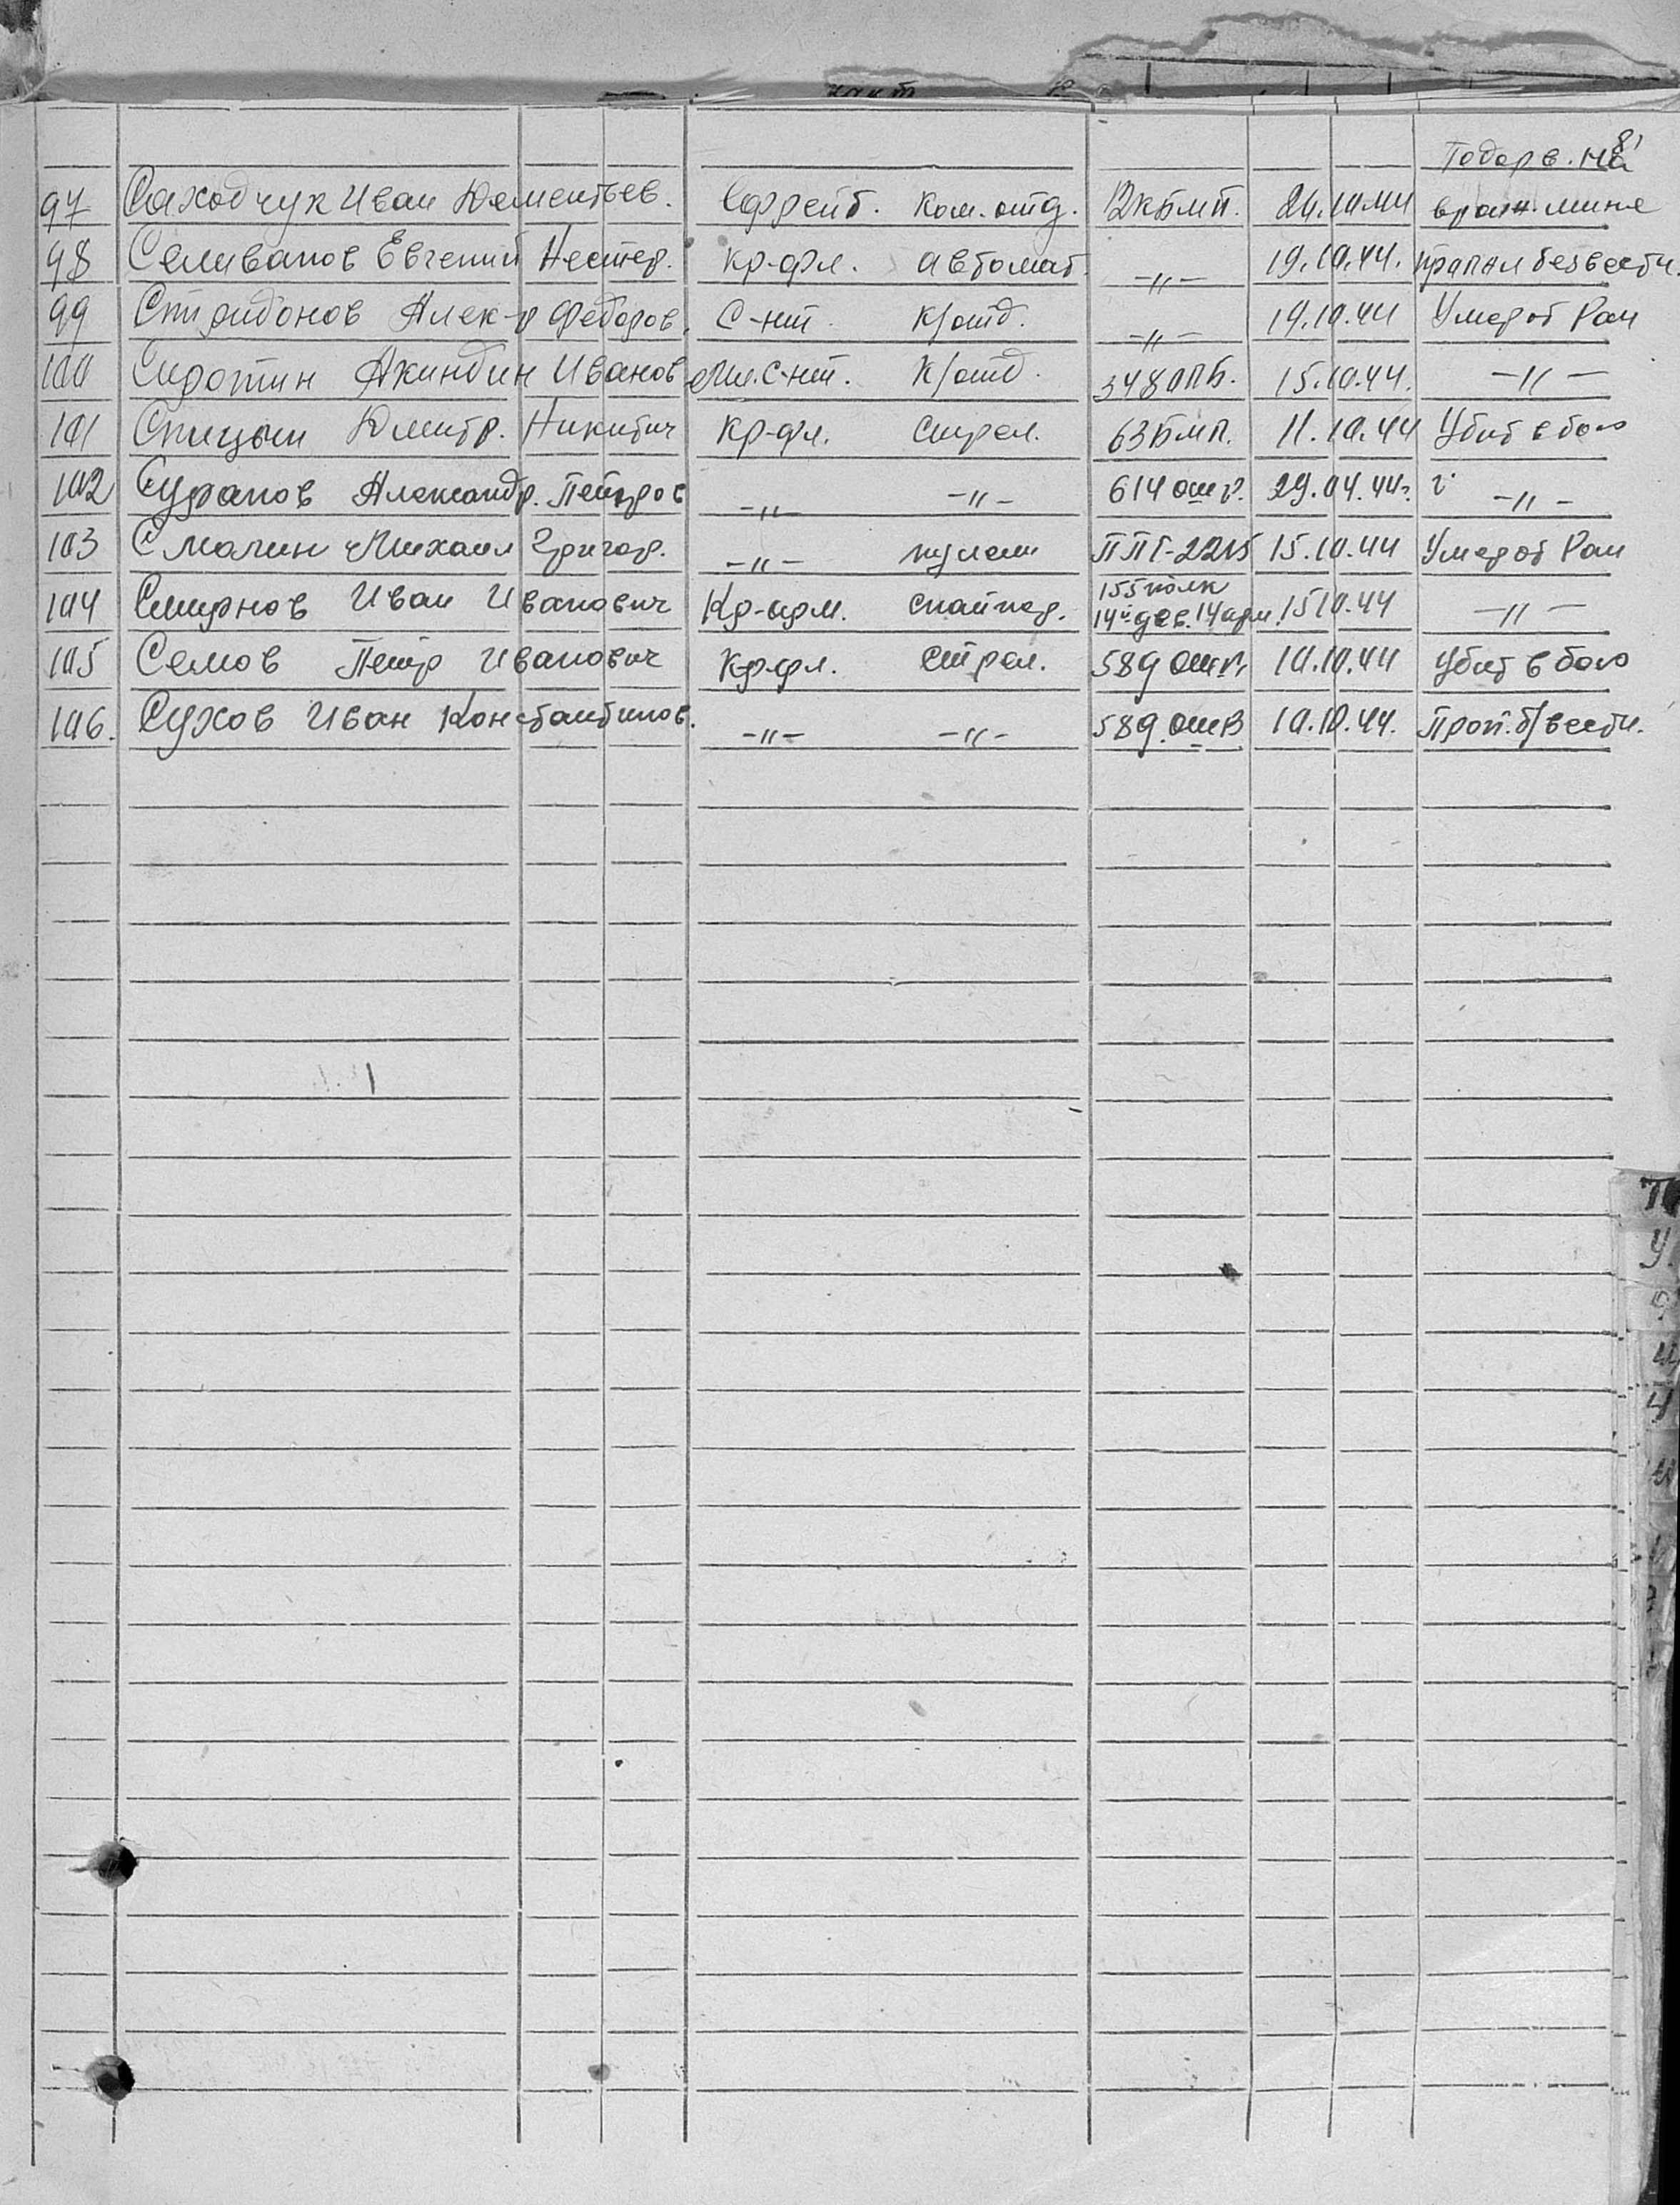 Подорв. на
97 Саходчук Иван Дементьев. Ефрейт. Ком. отд. 12КБМП. 20.10.44 враж. мине
98 Селиванов Евгений Нестер. Кр-фл. автомат. -"- 19.10.44. пропал без вести.
99 Спиридонов Алек-р Федоров. С-нт. К/отд. -"- 19.10.44 Умер от Ран
100 Сиротин Акиндин Иванов Мл. С-нт. К/отд. 348ОПБ. 15.10.44. -"-
101 Спицын Дмитр. Никитич Кр-фл. Стрел. 63БМП. 11.10.44 Убит в бою
102 Суранов Александр. Петров -"- -"- 614 ошр. 29.04.44г. -"-
103 Смолин Михаил Григор. -"- пулем ППГ-2215 15.10.44 Умер от Ран
155 полк
104 Смирнов Иван Иванович Кр-арм. снайпер. 14й див. 14 арм. 15.10.44 -"-
105 Семов Петр Иванович Кр-фл. Стрел. 589 10.10.44 Убит в бою
106. Сухов Иван Константинов. -"- -"- 589. 10.10.44. Проп. б/вести.
У